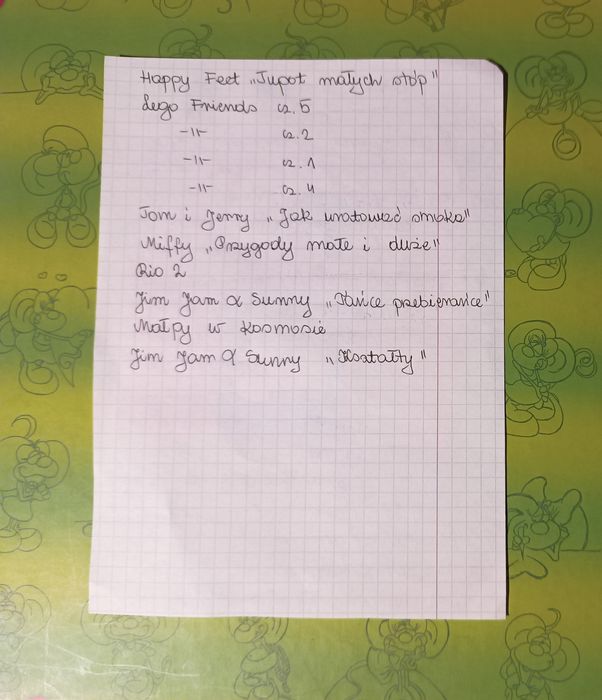 Happy Feet „Tupot małych stóp"
Lego Friends cz. 5
-11- cz. 2
-11- cz. 1
-11- cz. 4
Tom i Jerry „Jak uratować smoka"
Miffy „Przygody małe i duże"
Rio 2
Jim Jam & Sunny „Tańce przebierańce"
Małpy w kosmosie
Jim Jam & Sunny „Kształty"